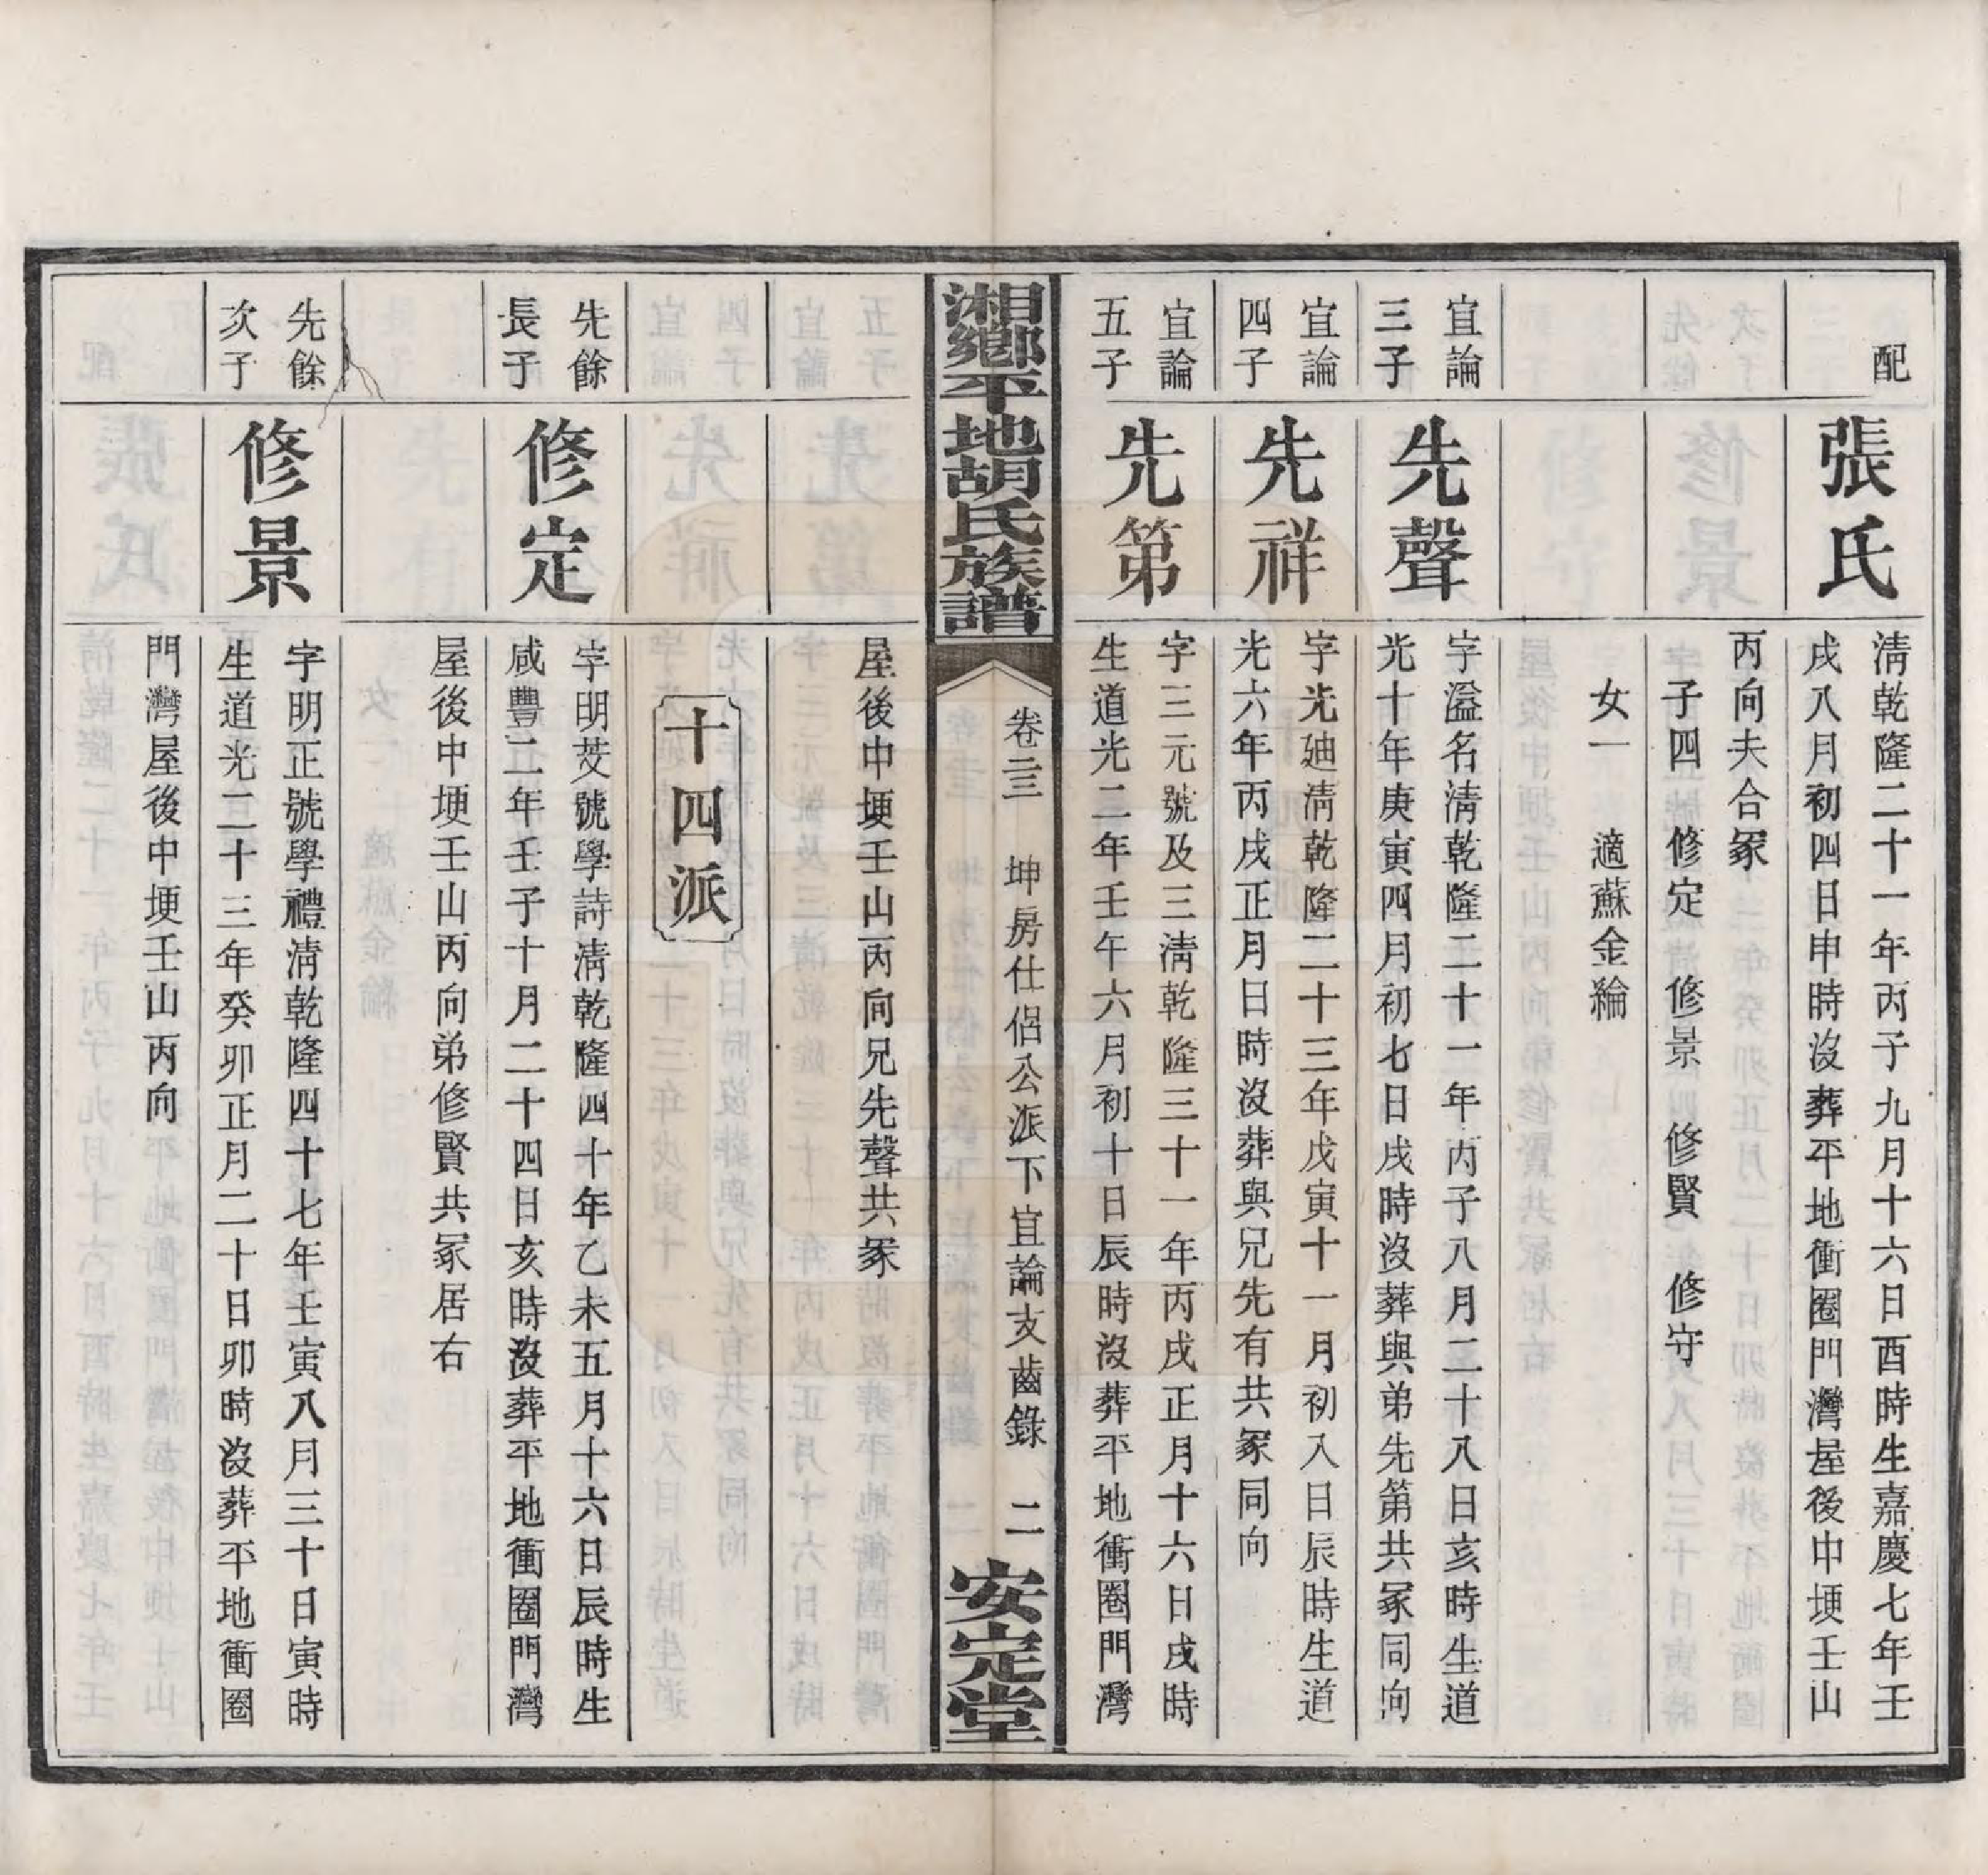 配
張氏
淸乾隆二十一年丙子九月十六日酉時生嘉慶七年壬
戌八月初四日申時沒葬平地衝圈門灣屋後中埂壬山
丙向夫合冢
子四 修定 修景 修賢 修守
女一 適蘇金綸
宜論
三子
先聲
字溢名淸乾隆二十一年丙子八月二十八日亥時生道
光十年庚寅四月初七日戌時沒葬與弟先第共冢同向
宜論
四子
先祥
字光廸淸乾隆二十三年戊寅十一月初入日辰時生道
光六年丙戌正月日時沒葬與兄先有共冢同向
宜論
五子
先第
字三元號及三淸乾隆三十一年丙戌正月十六日戌時
生道光二年壬午六月初十日辰時沒葬平地衝圈門灣
湘鄉平地胡氏族譜
卷三 坤房仕侶公派下宜論支齒錄 二
安定堂
屋後中埂壬山丙向兄先聲共冢
十四派
先餘
長子
修定
字明芠號學詩淸乾隆四十年乙未五月十六日辰時生
咸豐二年壬子十月二十四日亥時沒葬平地衝圈門灣
屋後中埂壬山丙向弟修賢共冢居右
先餘
次子
修景
字明正號學禮淸乾隆四十七年壬寅八月三十日寅時
生道光二十三年癸卯正月二十日卯時沒葬平地衝圈
門灣屋後中埂壬山丙向